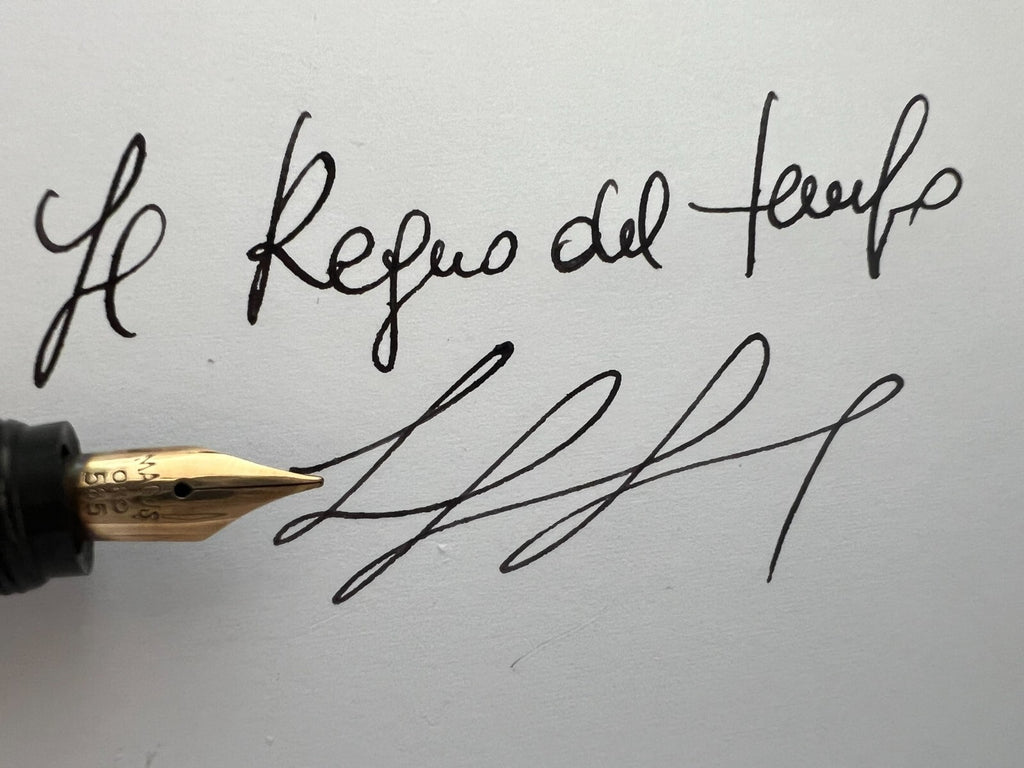 Il Regno del tempo
MAGNUS
ORO
585